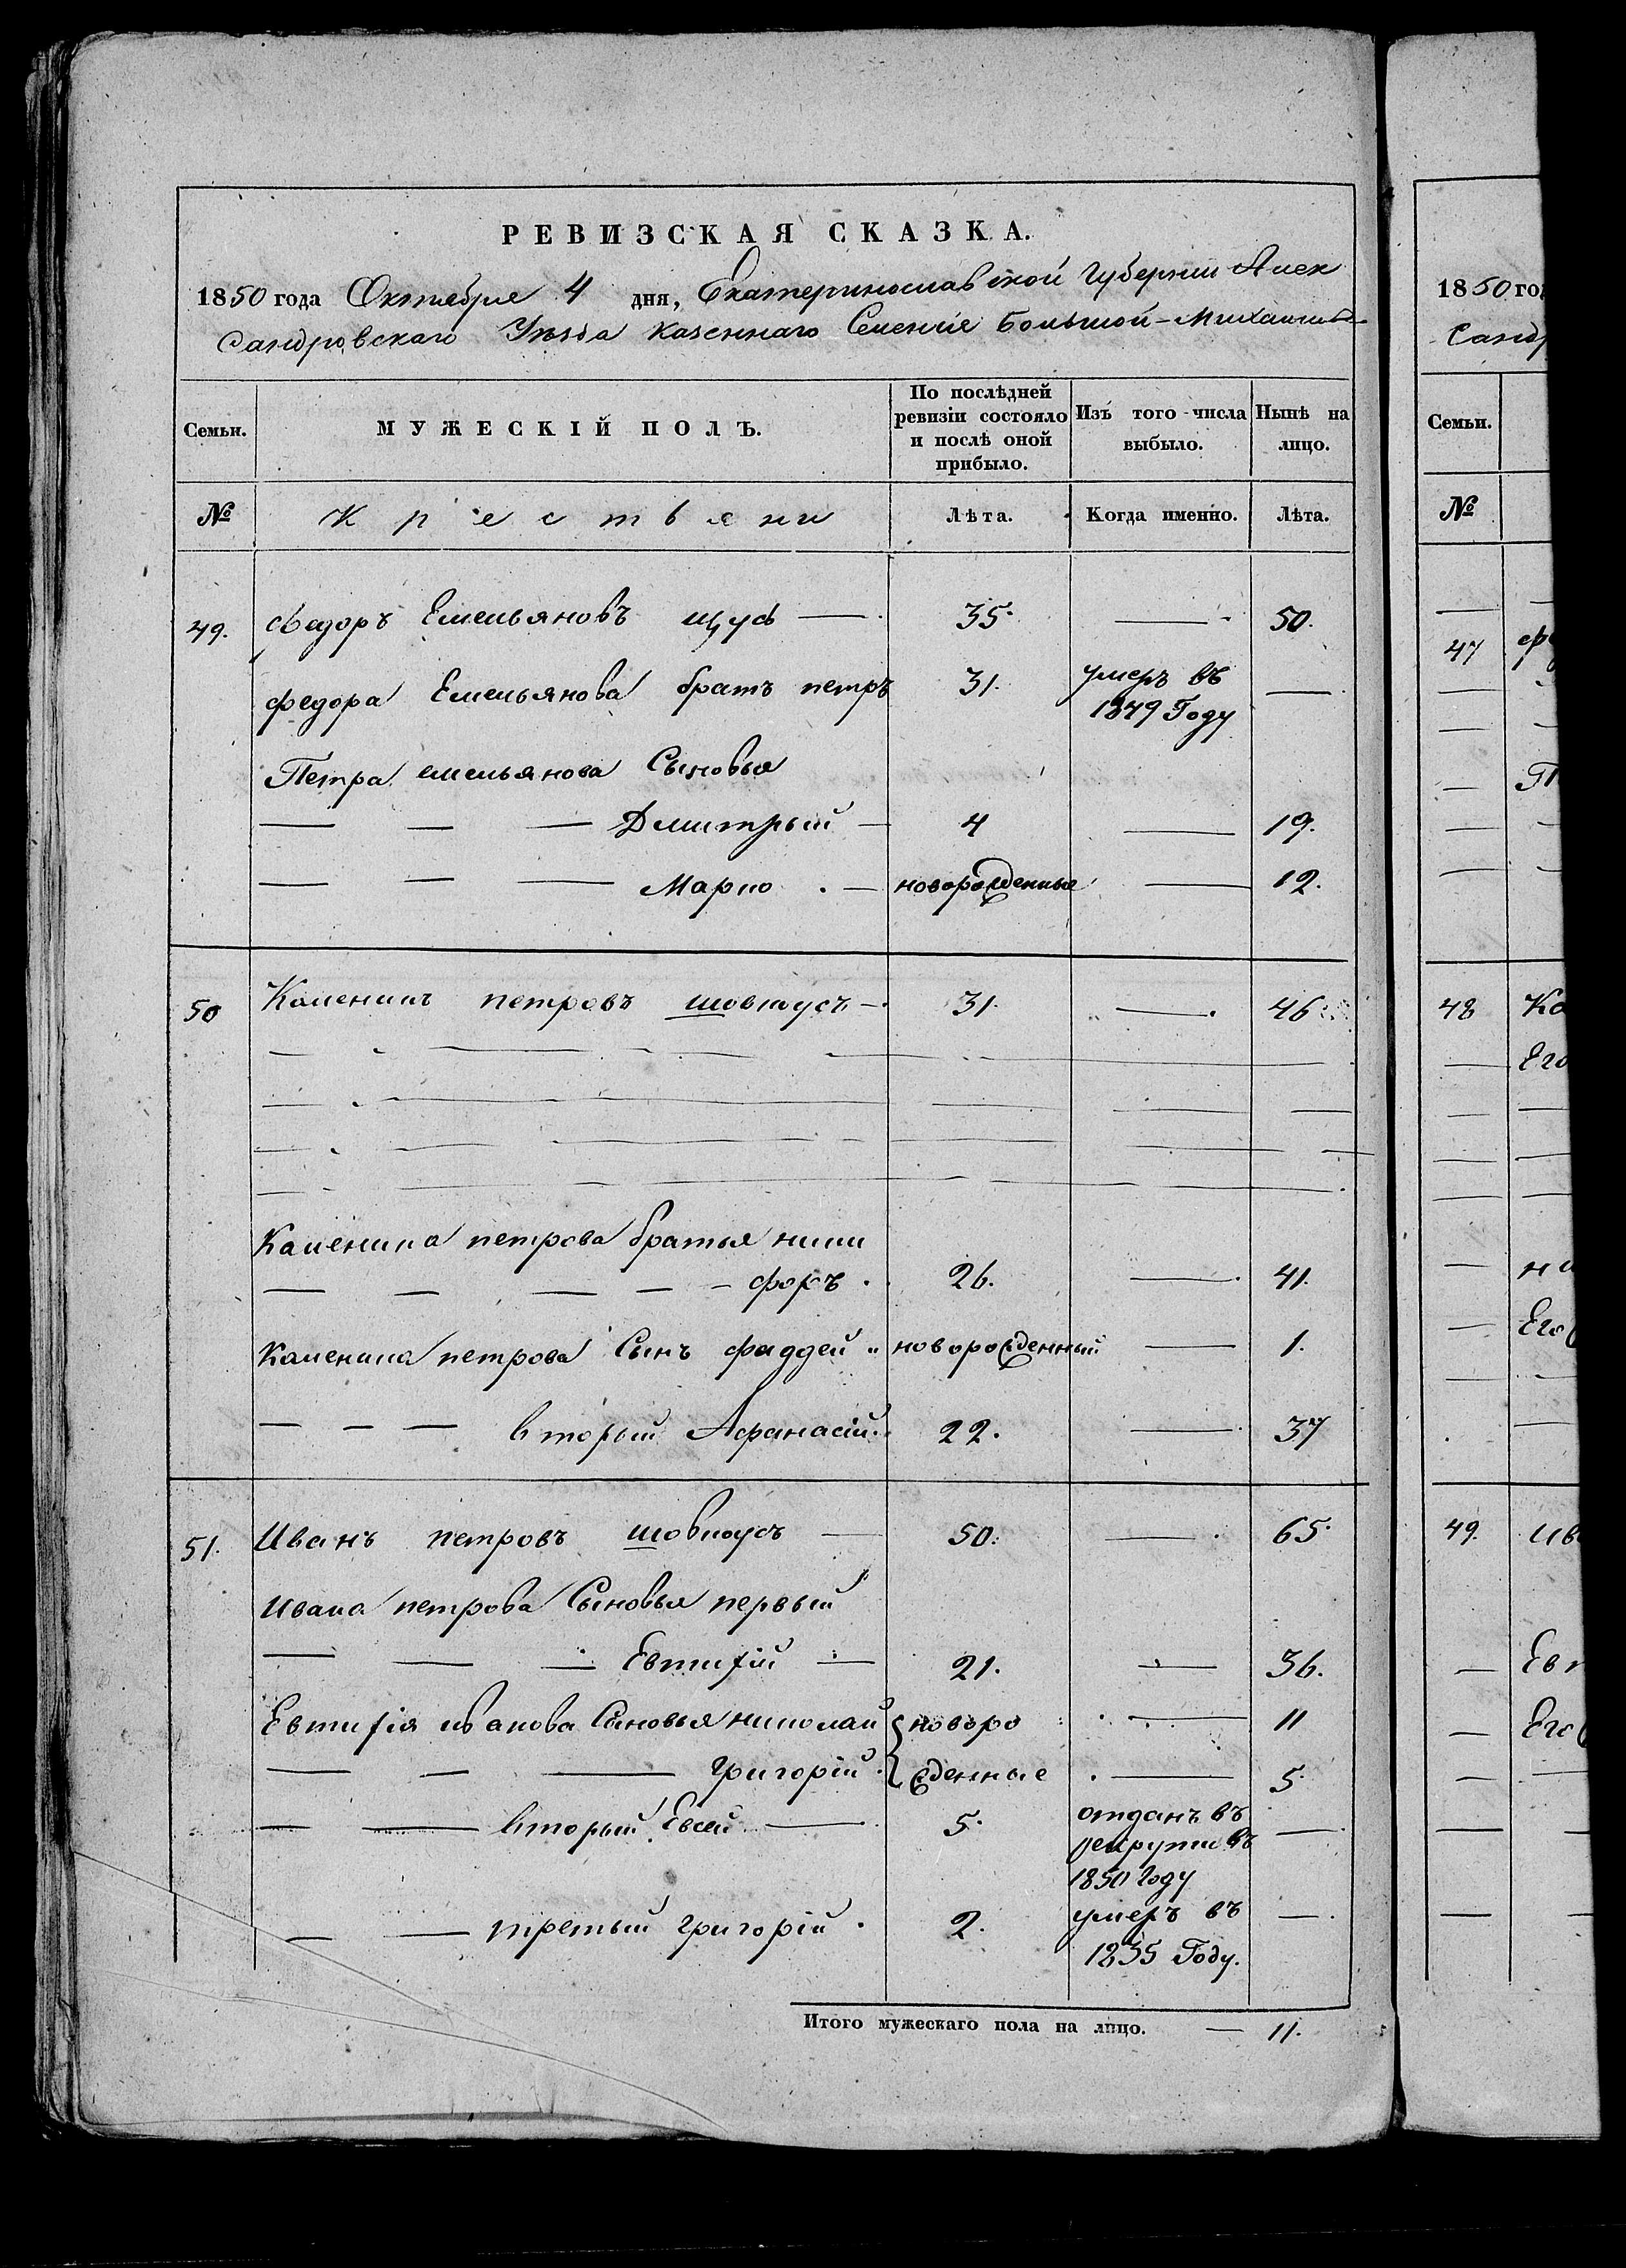 РЕВИЗСКАЯ СКАЗКА.
1850 года Октября 4 дня, Екатеринославской Губернии Алек
сандровскаго Уѣзда казеннаго Селенія Большой-Михайловк
Семьи.
МУЖЕСКІЙ ПОЛЪ.
По послѣдней ревизіи состояло и послѣ оной прибыло.
Изъ того числа выбыло.
Нынѣ на лицо.
№ Крестьяни Лѣта. Когда именно. Лѣта.
49. Федоръ Емельяновъ щусь — 35. — 50.
федора Емельянова братъ петръ 31. умеръ въ —
1849 Году
Петра емельянова Сыновья
— — — Дмитрый — 4 — 19.
— — — Марко . — новорожденные — 12.
50 Каленикъ петровъ шовкоусъ — 31. — 46
Каленика петрова братья ники
— — — — — форъ . 26. — 41.
каленика петрова Сынъ фаддей " новорожденный — 1.
— — — вторый Афанасій. 22. — 37
51. Иванъ петровъ шовкоусъ — 50. — 65.
ивана петрова Сыновья первый
— — — Евтифій — 21. — 36.
Евтифія иванова Сыновья николай { новоро — 11
— — — григорій { жденные — 5.
— — вторый Евсей — 5. отданъ въ —
рекруты въ
1850 году
— — третый григорій . 2. умеръ въ —
1835 Году.
Итого мужескаго пола на лицо. — 11.
1850 го
Санд
Семьи.
№
47
48 Ка
Его
ни
Его
49. ив
Ев
Его